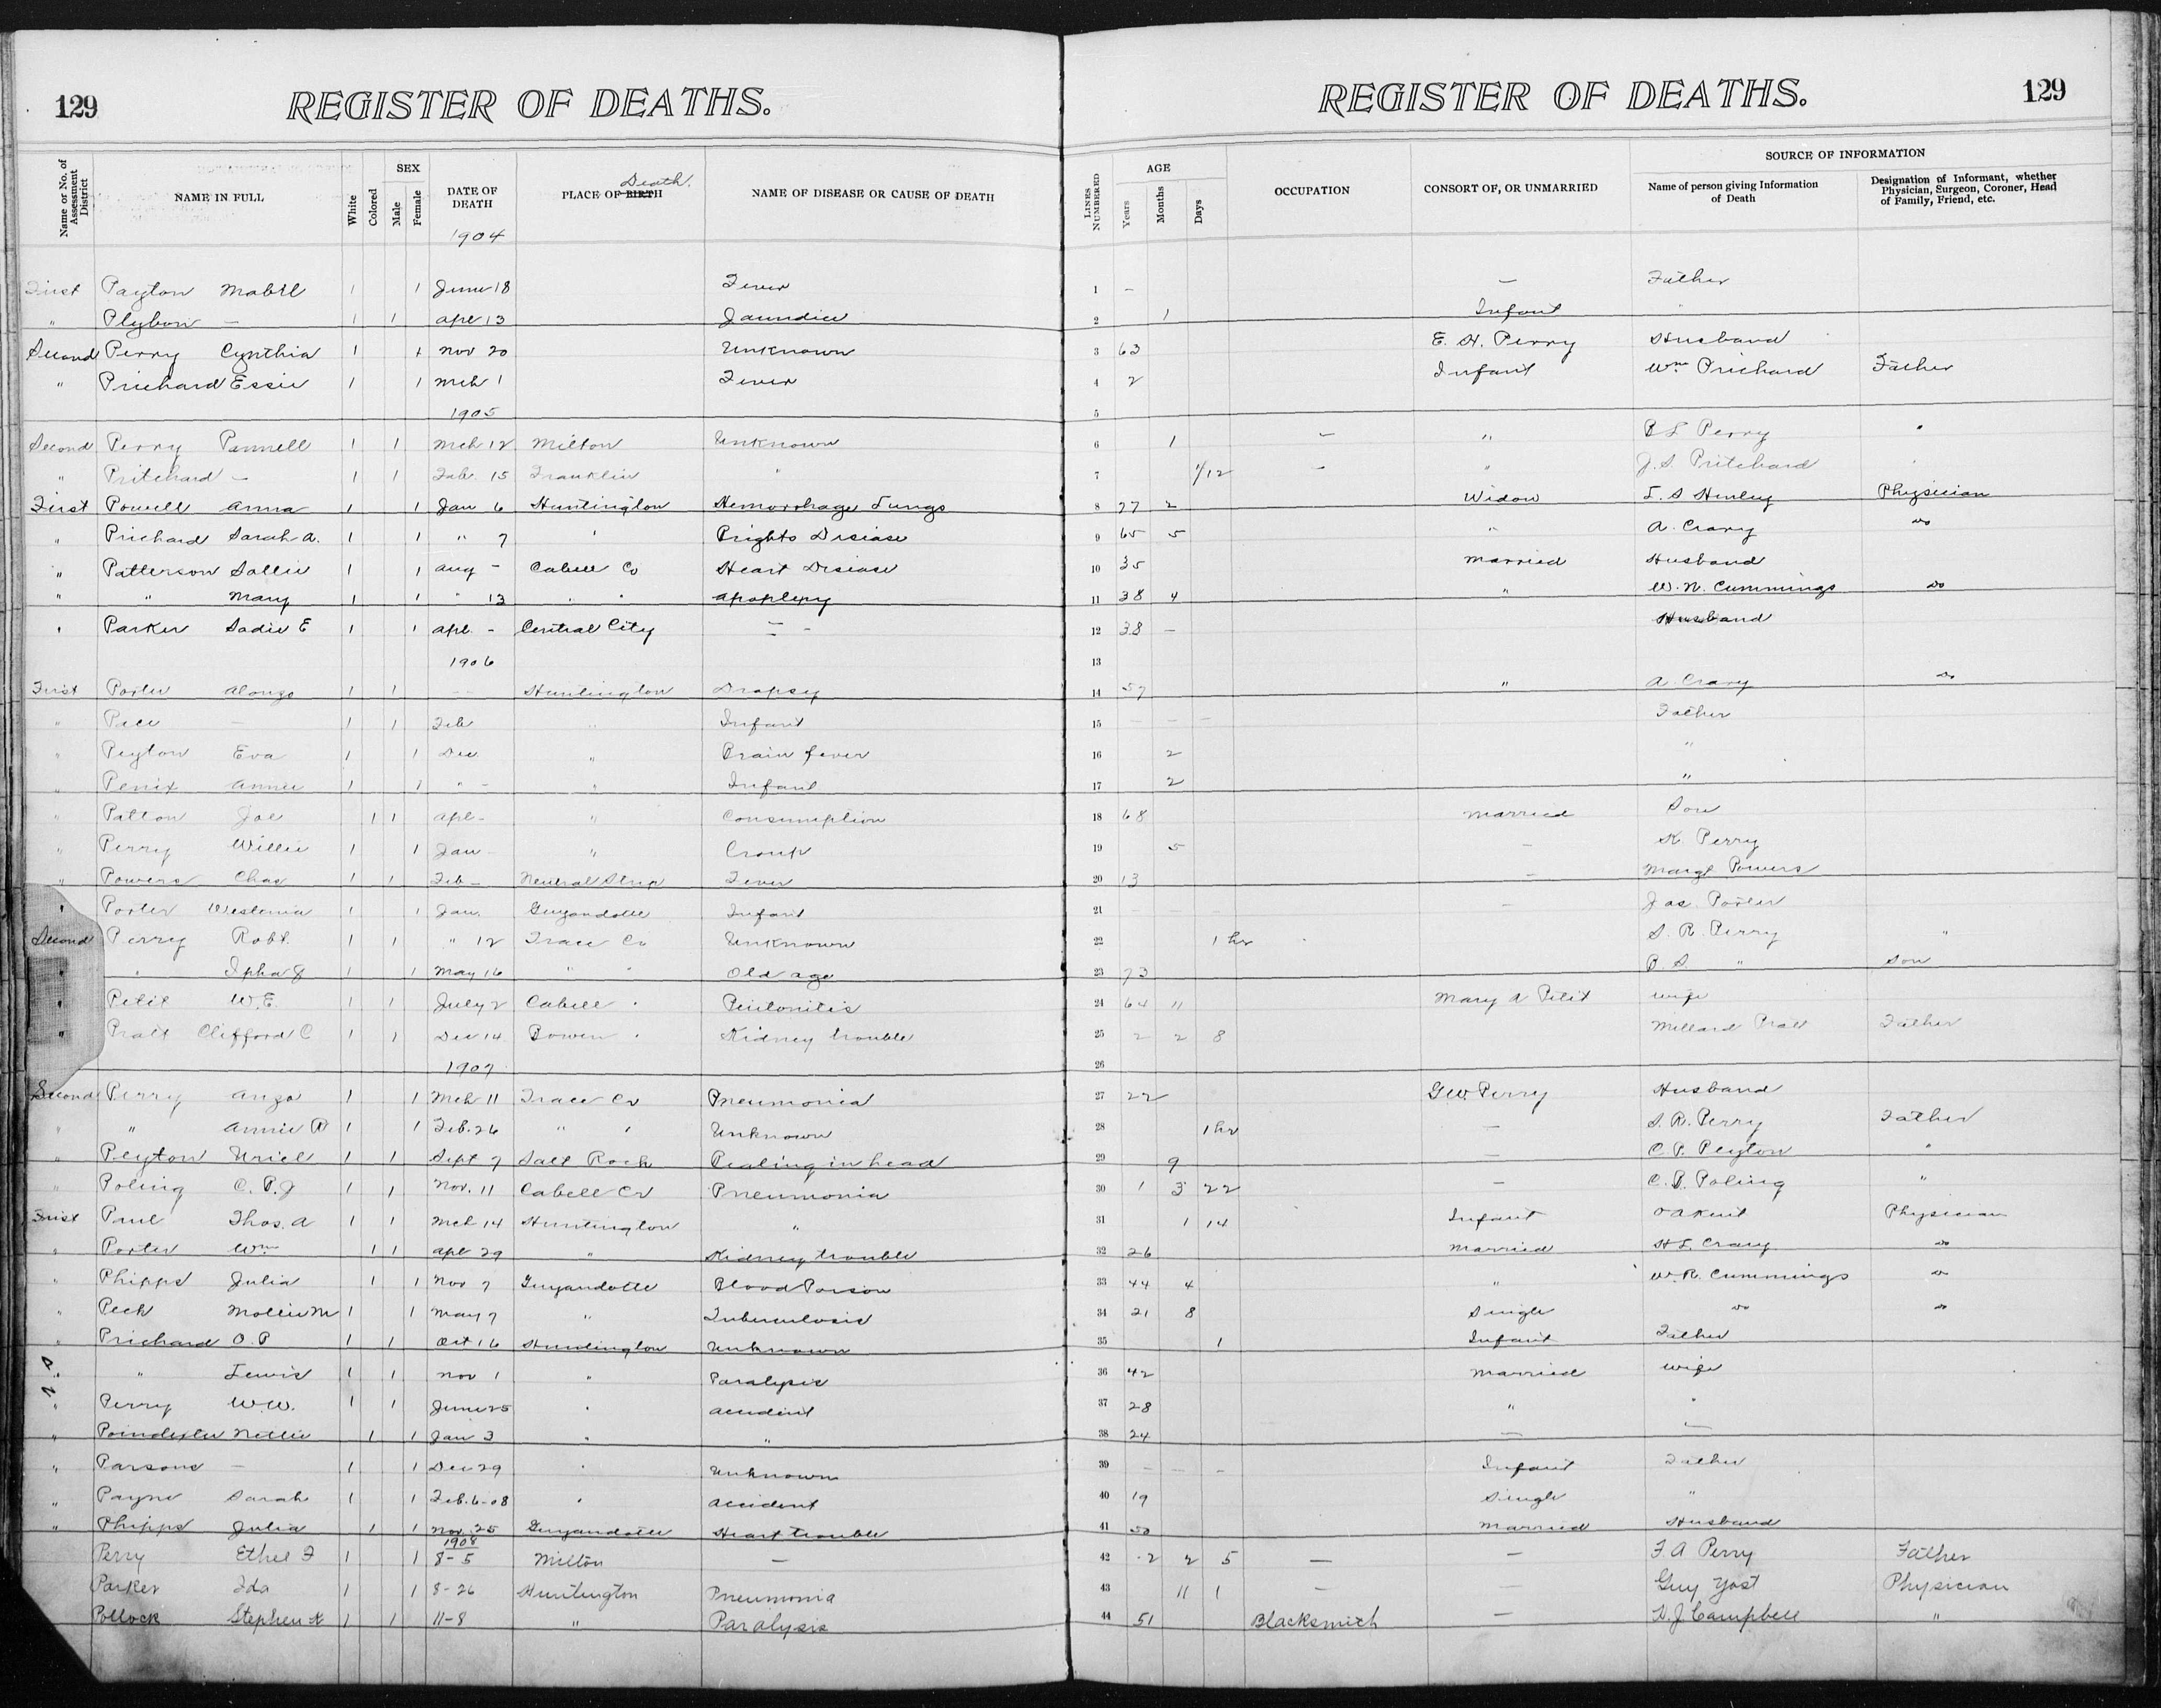 129 REGISTER OF DEATHS. REGISTER OF DEATHS. 129
Name or No. of Assessment District NAME IN FULL White Colored SEX Male Female DATE OF DEATH PLACE OF BIRTH Death. NAME OF DISEASE OR CAUSE OF DEATH LINES NUMBERED AGE Years Months Days OCCUPATION CONSORT OF, OR UNMARRIED SOURCE OF INFORMATION Name of person giving Information of Death Designation of Informant, whether Physician, Surgeon, Coroner, Head of Family, Friend, etc.
1904
First Payton Mabel 1 1 June 18 Fever 1 - - Father
" Plybon - 1 1 Apl 13 Jaundice 2 1 Infant "
Second Perry Cynthia 1 1 Nov 20 Unknown 3 63 E. H. Perry Husband
" Prichard Essie 1 1 Mch 1 Fever 4 2 Infant Wm Prichard Father
1905 5
Second Perry Pannell 1 1 Mch 12 Milton Unknown 6 1 - " B L Perry "
" Pritchard - 1 1 Feb. 15 Franklin " 7 1/12 - " J. S. Pritchard "
First Powell Anna 1 1 Jan 6 Huntington Hemorrhage Lungs 8 77 2 Widow L. S Henley Physician
" Prichard Sarah A. 1 1 " 7 " Brights Disease 9 65 5 " A. Crary do
" Patterson Sallie 1 1 Aug - Cabell Co Heart Disease 10 35 Married Husband
" " Mary 1 1 " 13 " " Apoplexy 11 38 4 " W. N. Cummings do
" Parker Sadie E 1 1 Apl. - Central City - - 12 38 - Husband
1906 13
First Porter Alonzo 1 1 - Huntington Dropsy 14 57 " A. Crary do
" Pace - 1 1 Feb " Infant 15 - - - Father
" Peyton Eva 1 1 Dec " Brain fever 16 2 "
" Penix Annie 1 1 " - " Infant 17 2 "
" Patton Joe 1 1 Apl - " Consumption 18 68 Married Son
" Perry Willie 1 1 Jan - " Croup 19 5 - K. Perry
" Powers Chas 1 1 Feb - Neutral Strip Fever 20 13 - Margt Powers
" Porter Westenia 1 1 Jan. Guyandotte Infant 21 - - - - Jas. Porter
Second Perry Robt. 1 1 " 12 Trace Cr Unknown 22 1 hr S. R. Perry "
" " 1 1 May 16 " " Old age 23 73 B. S. " Son
" Petit W. E. 1 1 July 2 Cabell " 24 64 11 Mary A Petit Wife
" Pratt Clifford C 1 1 Dec 14 Bowen " Kidney trouble 25 2 2 8 Millard Pratt Father
1907 26
Second Perry 1 1 Mch 11 Trace Cr Pneumonia 27 22 Geo Perry Husband
" " Annie R 1 1 Feb. 26 " " Unknown 28 1 hr - S. R. Perry Father
" Peyton Uriel 1 1 Sept 7 Salt Rock in head 29 9 - C. P. Peyton "
" Poling C. P. J 1 1 Nov. 11 Cabell Cr Pneumonia 30 1 3 22 - C. P. Poling "
First Thos. A 1 1 Mch 14 Huntington " 31 1 14 Infant Physician
" Porter Wm 1 1 Apl 29 " Kidney trouble 32 26 Married do
" Phipps Julia 1 1 Nov 7 Guyandotte Blood Poison 33 44 4 " W. R. Cummings do
" Peck Mollie M 1 1 May 7 " Tuberculosis 34 21 8 Single do do
" Prichard O. P 1 1 Oct 16 Huntington Unknown 35 1 Infant Father
" " Lewis 1 1 Nov 1 " Paralysis 36 42 Married Wife
" Perry W. W. 1 1 June 25 " Accident 37 28 " "
" Poindexter Nettie 1 1 Jan 3 " " 38 24 - -
" Parsons - 1 1 Dec 29 " Unknown 39 - - - Infant Father
" Payne Sarah 1 1 Feb. 6-08 " Accident 40 19 Single "
" Phipps Julia 1 1 Nov. 25 Guyandotte Heart trouble 41 50 Married Husband
1908
Perry Ethel F 1 1 8-5 Milton - 42 2 2 5 - - F. A Perry Father
Parker Ida 1 1 8-26 Huntington Pneumonia 43 11 1 - - Guy Yost Physician
Pollock Stephen A 1 1 11-8 " Paralysis 44 51 Blacksmith - Campbell "